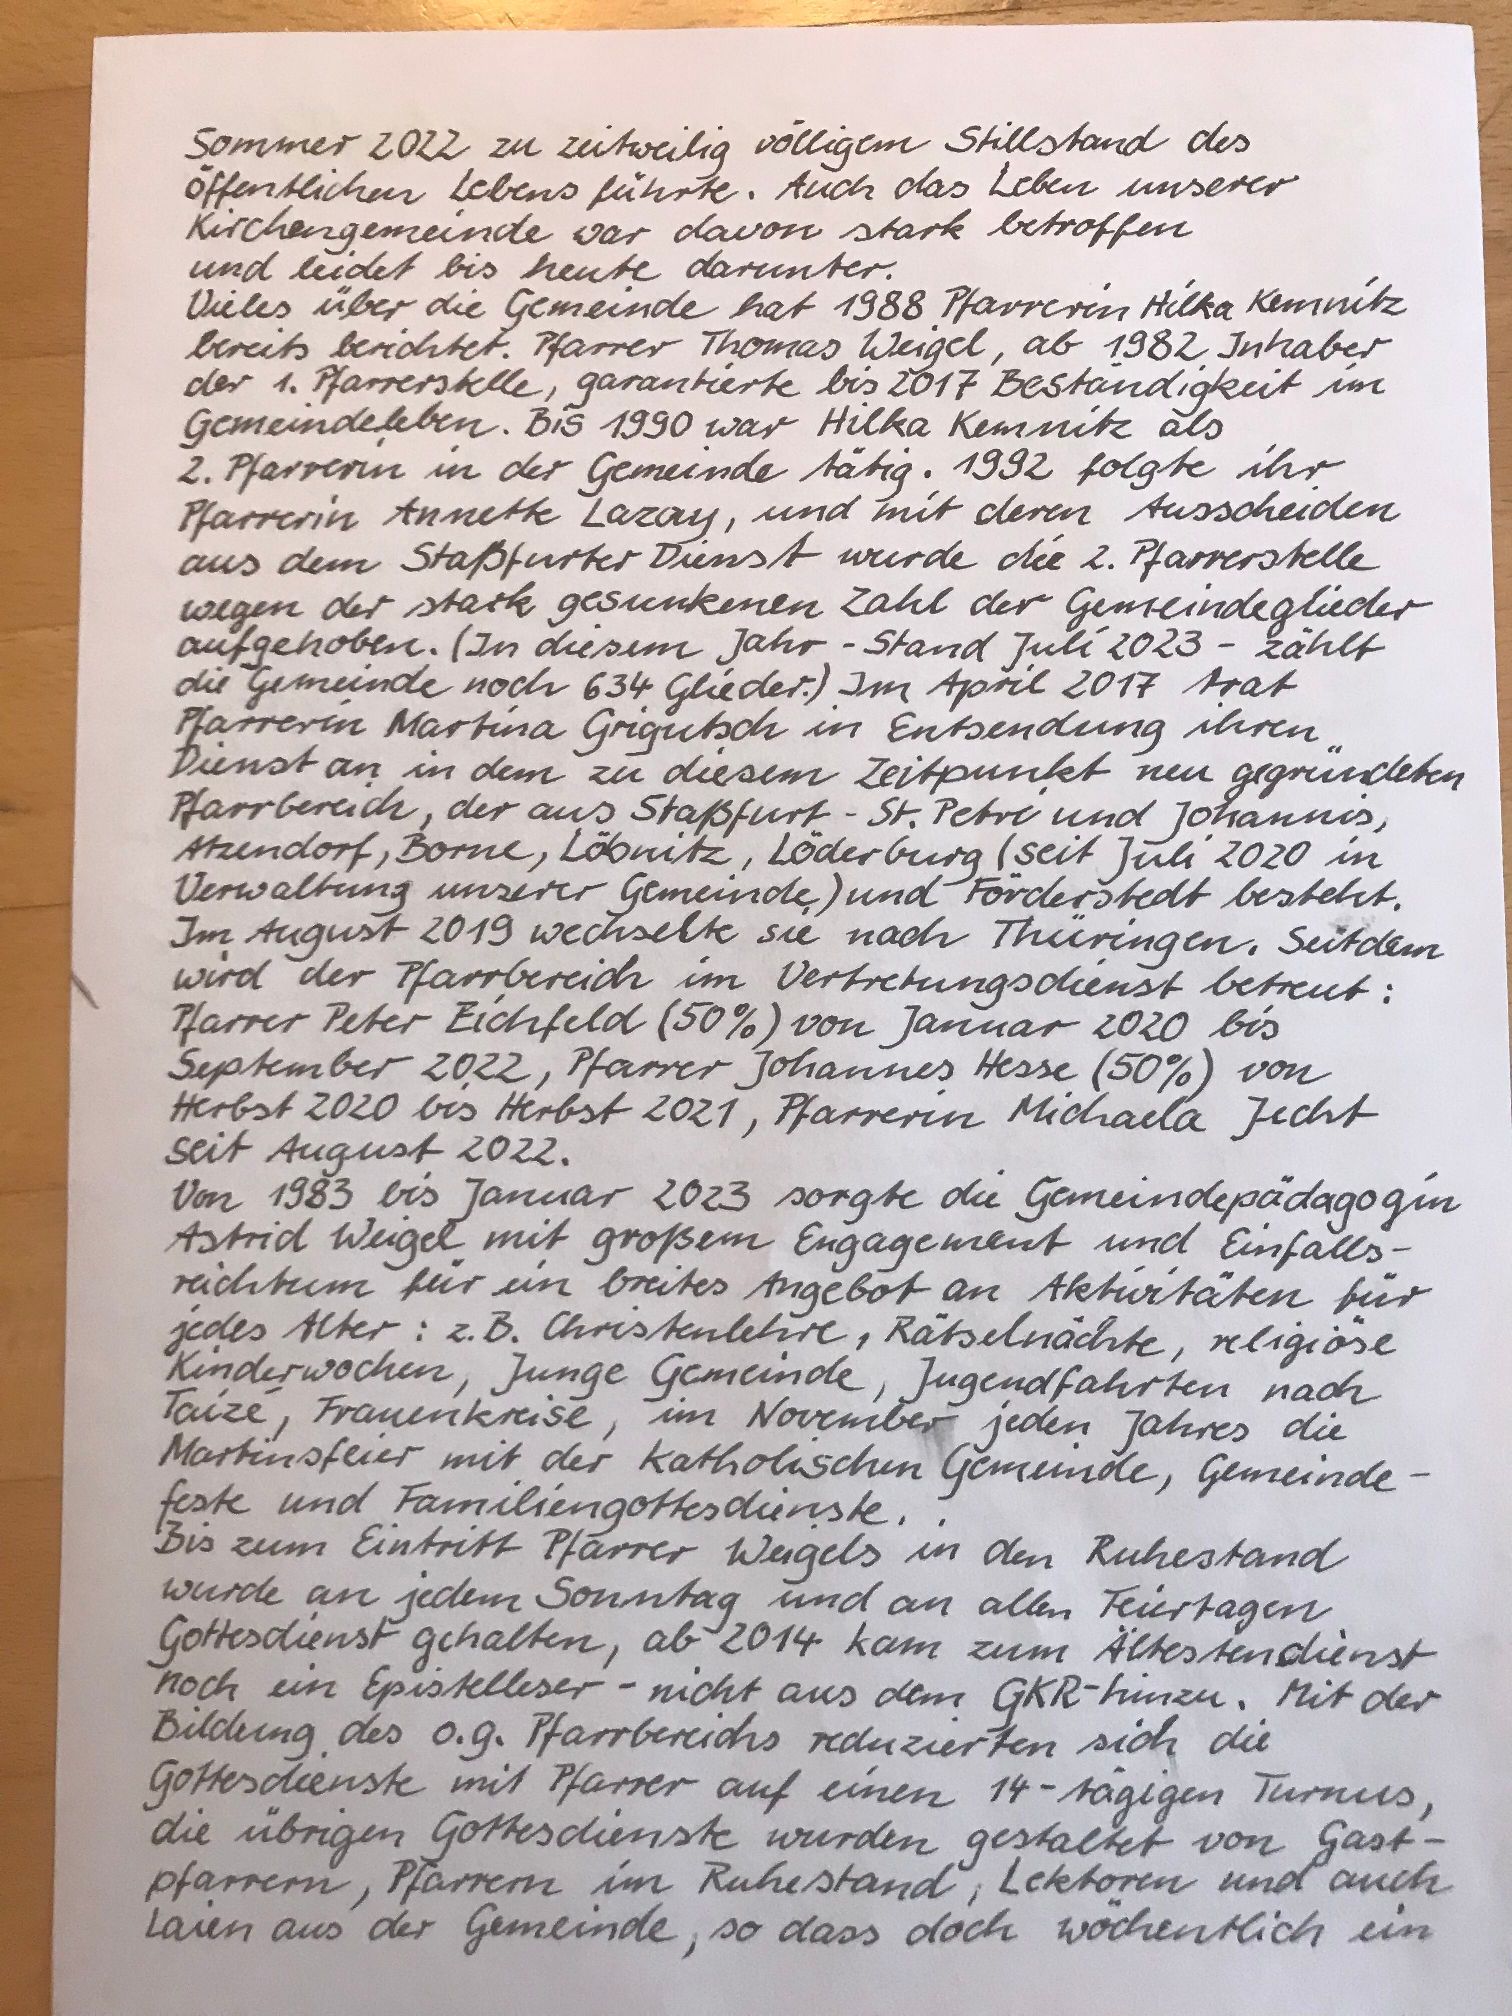 Sommer 2022 zu zeitweilig völligem Stillstand des
öffentlichen Lebens führte. Auch das Leben unserer
Kirchengemeinde war davon stark betroffen
und leidet bis heute darunter.
Vieles über die Gemeinde hat 1988 Pfarrerin Hilka Kemnitz
bereits berichtet. Pfarrer Thomas Weigel, ab 1982 Inhaber
der 1. Pfarrerstelle, garantierte bis 2017 Beständigkeit im
Gemeindeleben. Bis 1990 war Hilka Kemnitz als
2. Pfarrerin in der Gemeinde tätig. 1992 folgte ihr
Pfarrerin Annette Lazay, und mit deren Ausscheiden
aus dem Staßfurter Dienst wurde die 2. Pfarrerstelle
wegen der stark gesunkenen Zahl der Gemeindeglieder
aufgehoben. (In diesem Jahr - Stand Juli 2023 - zählt
die Gemeinde noch 634 Glieder.) Im April 2017 trat
Pfarrerin Martina Grigutsch in Entsendung ihren
Dienst an in dem zu diesem Zeitpunkt neu gegründeten
Pfarrbereich, der aus Staßfurt - St. Petri und Johannis,
Atzendorf, Borne, Löbnitz, Löderburg (seit Juli 2020 in
Verwaltung unserer Gemeinde) und Förderstedt besteht.
Im August 2019 wechselte sie nach Thüringen. Seitdem
wird der Pfarrbereich im Vertretungsdienst betreut:
Pfarrer Peter Eichfeld (50%) von Januar 2020 bis
September 2022, Pfarrer Johannes Hesse (50%) von
Herbst 2020 bis Herbst 2021, Pfarrerin Michaela Jecht
seit August 2022.
Von 1983 bis Januar 2023 sorgte die Gemeindepädagogin
Astrid Weigel mit großem Engagement und Einfalls-
reichtum für ein breites Angebot an Aktivitäten für
jedes Alter: z.B. Christenlehre, Rätselnächte, religiöse
Kinderwochen, Junge Gemeinde, Jugendfahrten nach
Taizé, Frauenkreise, im November jeden Jahres die
Martinsfeier mit der katholischen Gemeinde, Gemeinde-
feste und Familiengottesdienste.
Bis zum Eintritt Pfarrer Weigels in den Ruhestand
wurde an jedem Sonntag und an allen Feiertagen
Gottesdienst gehalten, ab 2014 kam zum Ältestendienst
noch ein Epistelleser - nicht aus dem GKR - hinzu. Mit der
Bildung des o.g. Pfarrbereichs reduzierten sich die
Gottesdienste mit Pfarrer auf einen 14-tägigen Turnus,
die übrigen Gottesdienste wurden gestaltet von Gast-
pfarrern, Pfarrern im Ruhestand, Lektoren und auch
Laien aus der Gemeinde, so dass doch wöchentlich ein